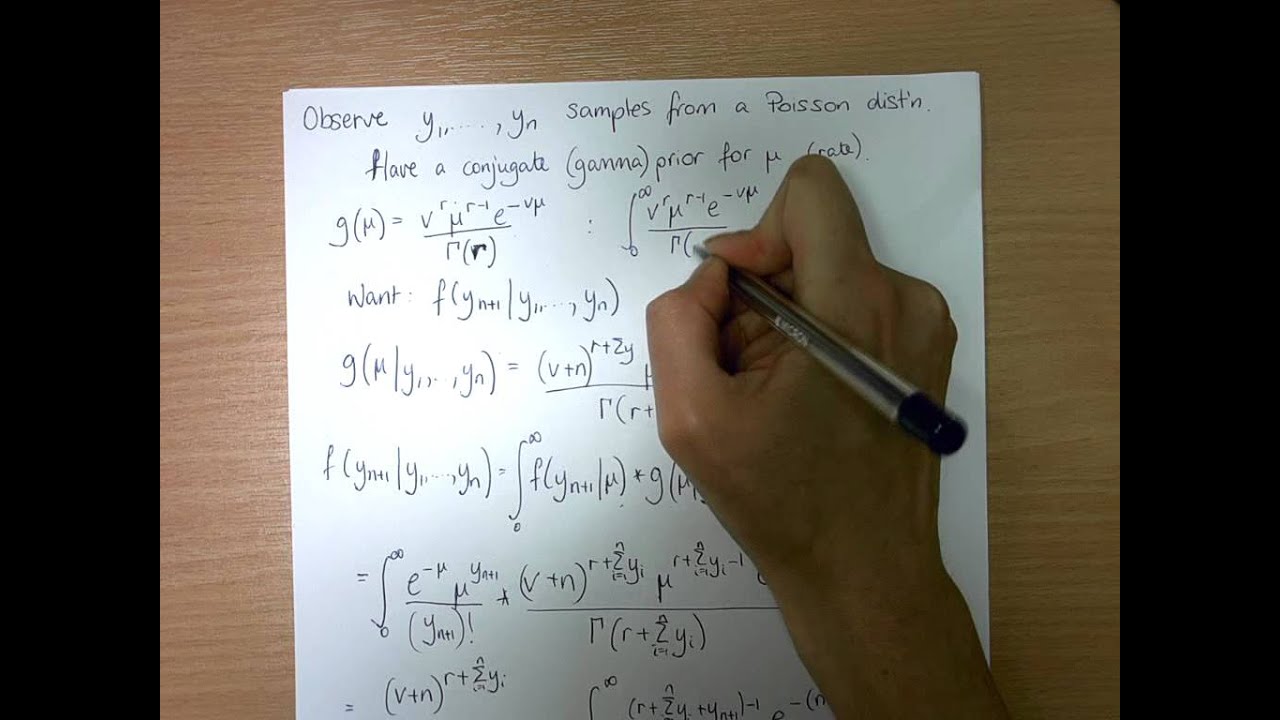 Observe y₁,....., yₙ samples from a Poisson dist'n.
Have a conjugate (gamma) prior for μ (rate).
g(μ) = v^r μ^{r-1} e^{-vμ} / Γ(r) : ∫₀^∞ v^r μ^{r-1} e^{-vμ} / Γ(
Want: f(y_{n+1} | y₁,..., yₙ)
g(μ | y₁,..., yₙ) = (v+n)^{r+Σy} μ / Γ(r+
f(y_{n+1} | y₁,...., yₙ) = ∫₀^∞ f(y_{n+1} | μ) * g(μ
= ∫₀^∞ e^{-μ} μ^{y_{n+1}} / (y_{n+1})! * (v+n)^{r+Σ_{i=1}^n y_i} μ^{r+Σ_{i=1}^n y_i -1} / Γ(r+Σ_{i=1}^n y_i)
= (v+n)^{r+Σ_{i=1}^n y_i} ∫^∞ (r+Σ^n y_i+y_{n+1})-1 e^{-(n